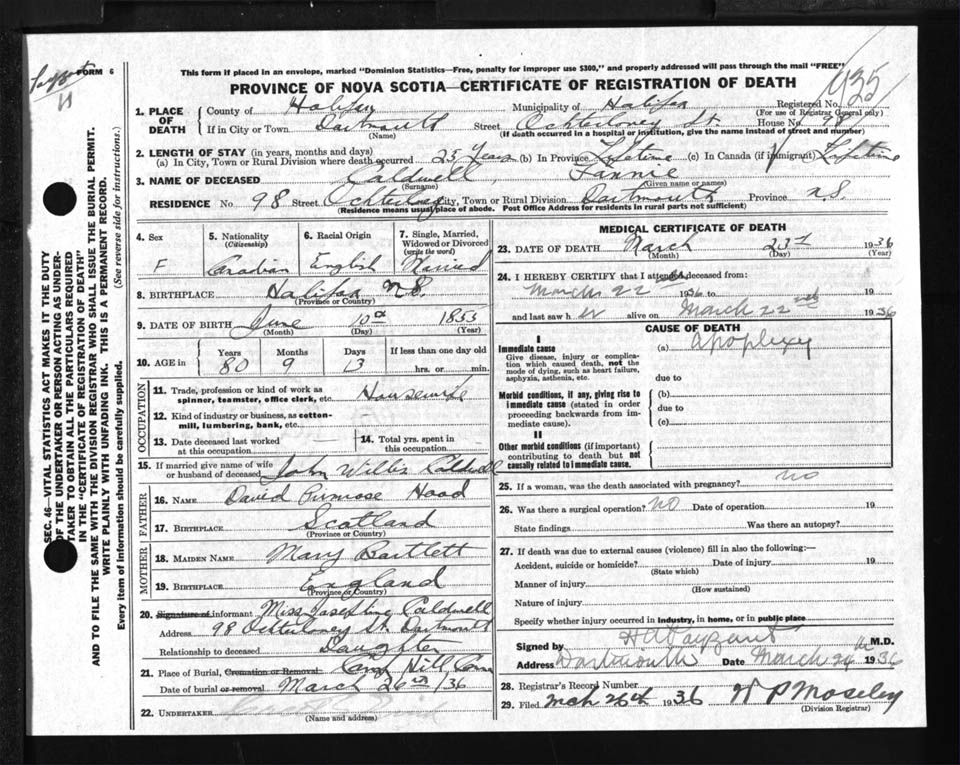 FORM 6
This form if placed in an envelope, marked "Dominion Statistics—Free, penalty for improper use $300," and properly addressed will pass through the mail "FREE"
PROVINCE OF NOVA SCOTIA—CERTIFICATE OF REGISTRATION OF DEATH
935
1. PLACE OF DEATH
County of Halifax Municipality of Halifax Registered No.
(For use of Registrar General only)
If in City or Town Dartmouth Street Ochterloney St. House No. 98
(Name) (If death occurred in a hospital or institution, give the name instead of street and number)
2. LENGTH OF STAY (in years, months and days)
(a) In City, Town or Rural Division where death occurred 25 Years (b) In Province Lifetime (c) In Canada (if immigrant) Lifetime
3. NAME OF DECEASED Caldwell, Fannie
(Surname) (Given name or names)
RESIDENCE No. 98 Street Ochterloney City, Town or Rural Division Dartmouth Province N.S.
(Residence means usual place of abode. Post Office Address for residents in rural parts not sufficient)
4. Sex F
5. Nationality (Citizenship) Canadian
6. Racial Origin English
7. Single, Married, Widowed or Divorced (write the word) Married
8. BIRTHPLACE Halifax N.S.
(Province or Country)
9. DATE OF BIRTH June 10th 1855
(Month) (Day) (Year)
10. AGE in Years 80 Months 9 Days 13 If less than one day old hrs. or min.
OCCUPATION
11. Trade, profession or kind of work as spinner, teamster, office clerk, etc. Housewife
12. Kind of industry or business, as cotton-mill, lumbering, bank, etc.
13. Date deceased last worked at this occupation
14. Total yrs. spent in this occupation
15. If married give name of wife or husband of deceased John Willis Caldwell
FATHER
16. NAME David Primrose Hood
17. BIRTHPLACE Scotland
(Province or Country)
MOTHER
18. MAIDEN NAME Mary Bartlett
19. BIRTHPLACE England
(Province or Country)
20. Signature of informant Miss Josephine Caldwell
Address 98 Ochterloney St. Dartmouth
Relationship to deceased Daughter
21. Place of Burial, Cremation or Removal Camp Hill Cem
Date of burial or removal March 26th /36
22. UNDERTAKER
(Name and address)
MEDICAL CERTIFICATE OF DEATH
23. DATE OF DEATH March 23rd 1936
(Month) (Day) (Year)
24. I HEREBY CERTIFY that I attended deceased from:
March 22nd 1936 to 19
and last saw her alive on March 22nd 1936
CAUSE OF DEATH
I
Immediate cause
Give disease, injury or complication which caused death, not the mode of dying, such as heart failure, asphyxia, asthenia, etc.
(a) apoplexy
due to
Morbid conditions, if any, giving rise to immediate cause (stated in order proceeding backwards from immediate cause).
(b)
due to
(c)
II
Other morbid conditions (if important) contributing to death but not causally related to immediate cause.
25. If a woman, was the death associated with pregnancy? no
26. Was there a surgical operation? no Date of operation 19
State findings Was there an autopsy?
27. If death was due to external causes (violence) fill in also the following:—
Accident, suicide or homicide? Date of injury 19
(State which)
Manner of injury
(How sustained)
Nature of injury
Specify whether injury occurred in industry, in home, or in public place
Signed by H A Payzant M.D.
Address Dartmouth Date March 24th 1936
28. Registrar's Record Number
29. Filed Mch 26th 1936 W P Moseley
(Division Registrar)
SEC. 46—VITAL STATISTICS ACT MAKES IT THE DUTY
OF THE UNDERTAKER OR PERSON ACTING AS UNDERTAKER TO OBTAIN ALL THE PARTICULARS REQUIRED
IN THE "CERTIFICATE OF REGISTRATION OF DEATH"
AND TO FILE THE SAME WITH THE DIVISION REGISTRAR WHO SHALL ISSUE THE BURIAL PERMIT.
WRITE PLAINLY WITH UNFADING INK. THIS IS A PERMANENT RECORD.
Every item of information should be carefully supplied. (See reverse side for instructions.)